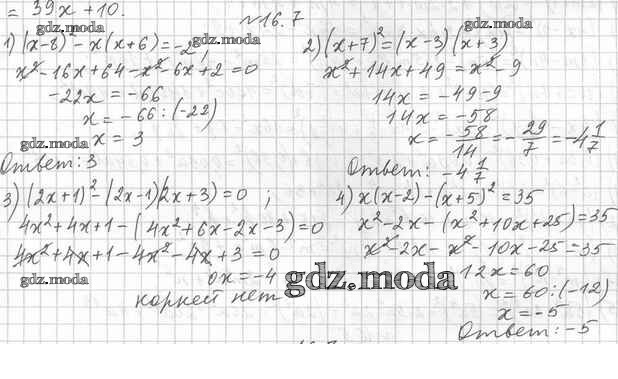 = 39x + 10.
gdz.moda
gdz.moda
№16.7
1) (x-8)² - x(x+6) = -2;
x² - 16x + 64 - x² - 6x + 2 = 0
-22x = -66
x = -66 : (-22)
gdz.moda
x = 3
Ответ: 3
2) (x+7)² = (x-3)(x+3)
x² + 14x + 49 = x² - 9
14x = -49 - 9
14x = -58
gdz.moda
x = -58/14 = -29/7 = -4 1/7
Ответ: -4 1/7
3) (2x+1)² - (2x-1)(2x+3) = 0 ;
4x² + 4x + 1 - (4x² + 6x - 2x - 3) = 0
4x² + 4x + 1 - 4x² - 4x + 3 = 0
gdz.moda
0x = -4
корней нет
gdz.moda
4) x(x-2) - (x+5)² = 35
x² - 2x - (x² + 10x + 25) = 35
x² - 2x - x² - 10x - 25 = 35
12x = 60
x = 60 : (-12)
x = -5
Ответ: -5